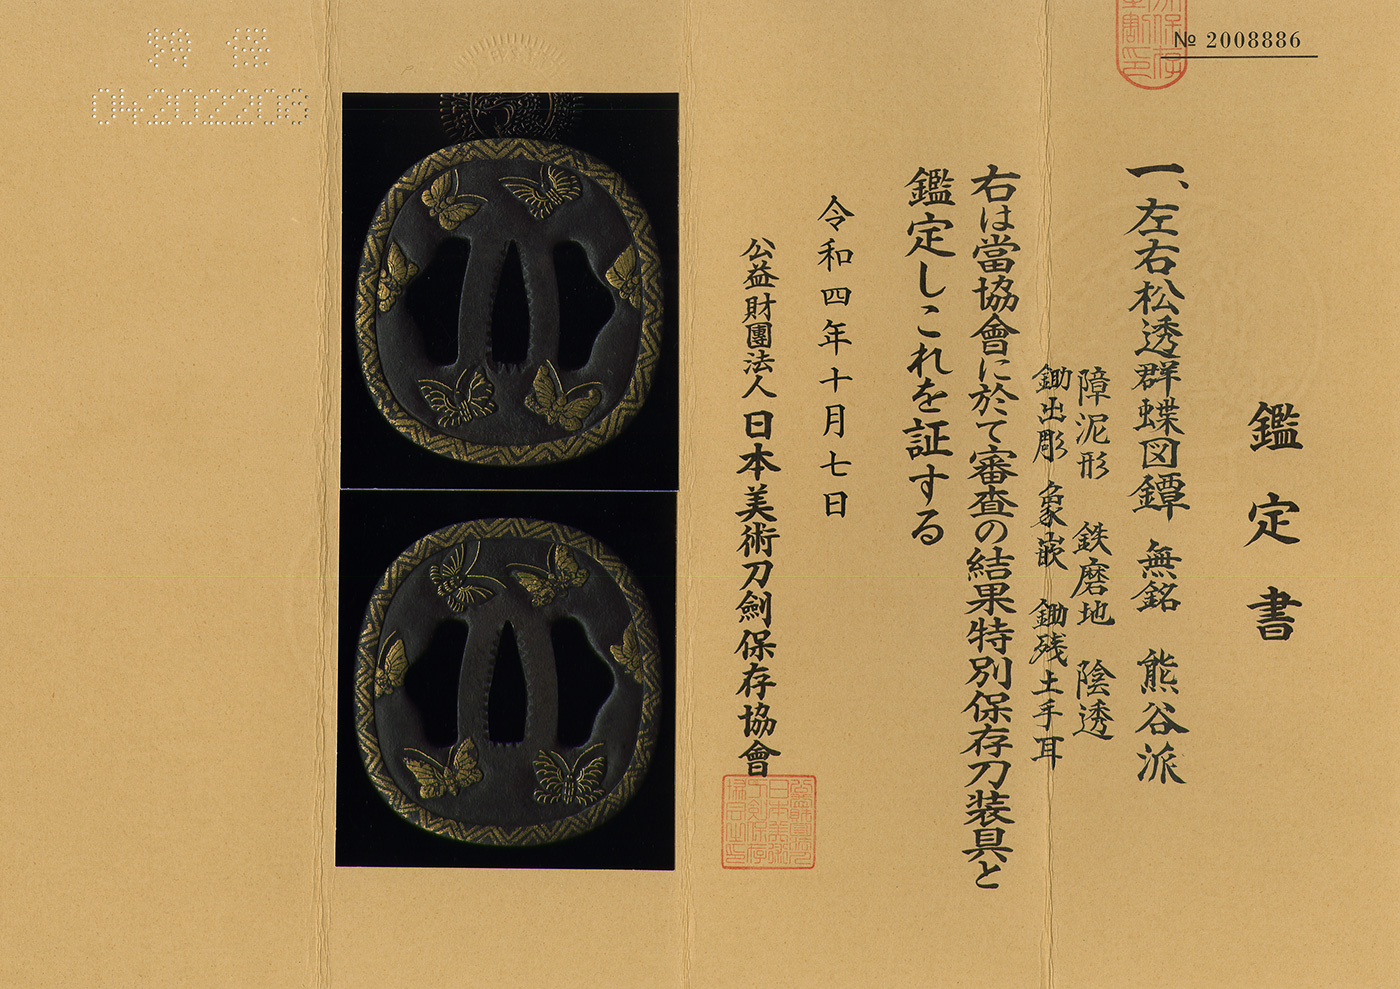 № 2008886
鑑定書
一、左右松透群蝶図鐔 無銘 熊谷派
障泥形 鉄磨地 陰透
鋤出彫 象嵌 鋤残土手耳
右は當協會に於て審査の結果特別保存刀装具と
鑑定しこれを証する
令和四年十月七日
公益財團法人 日本美術刀劍保存協會
特保
04202208